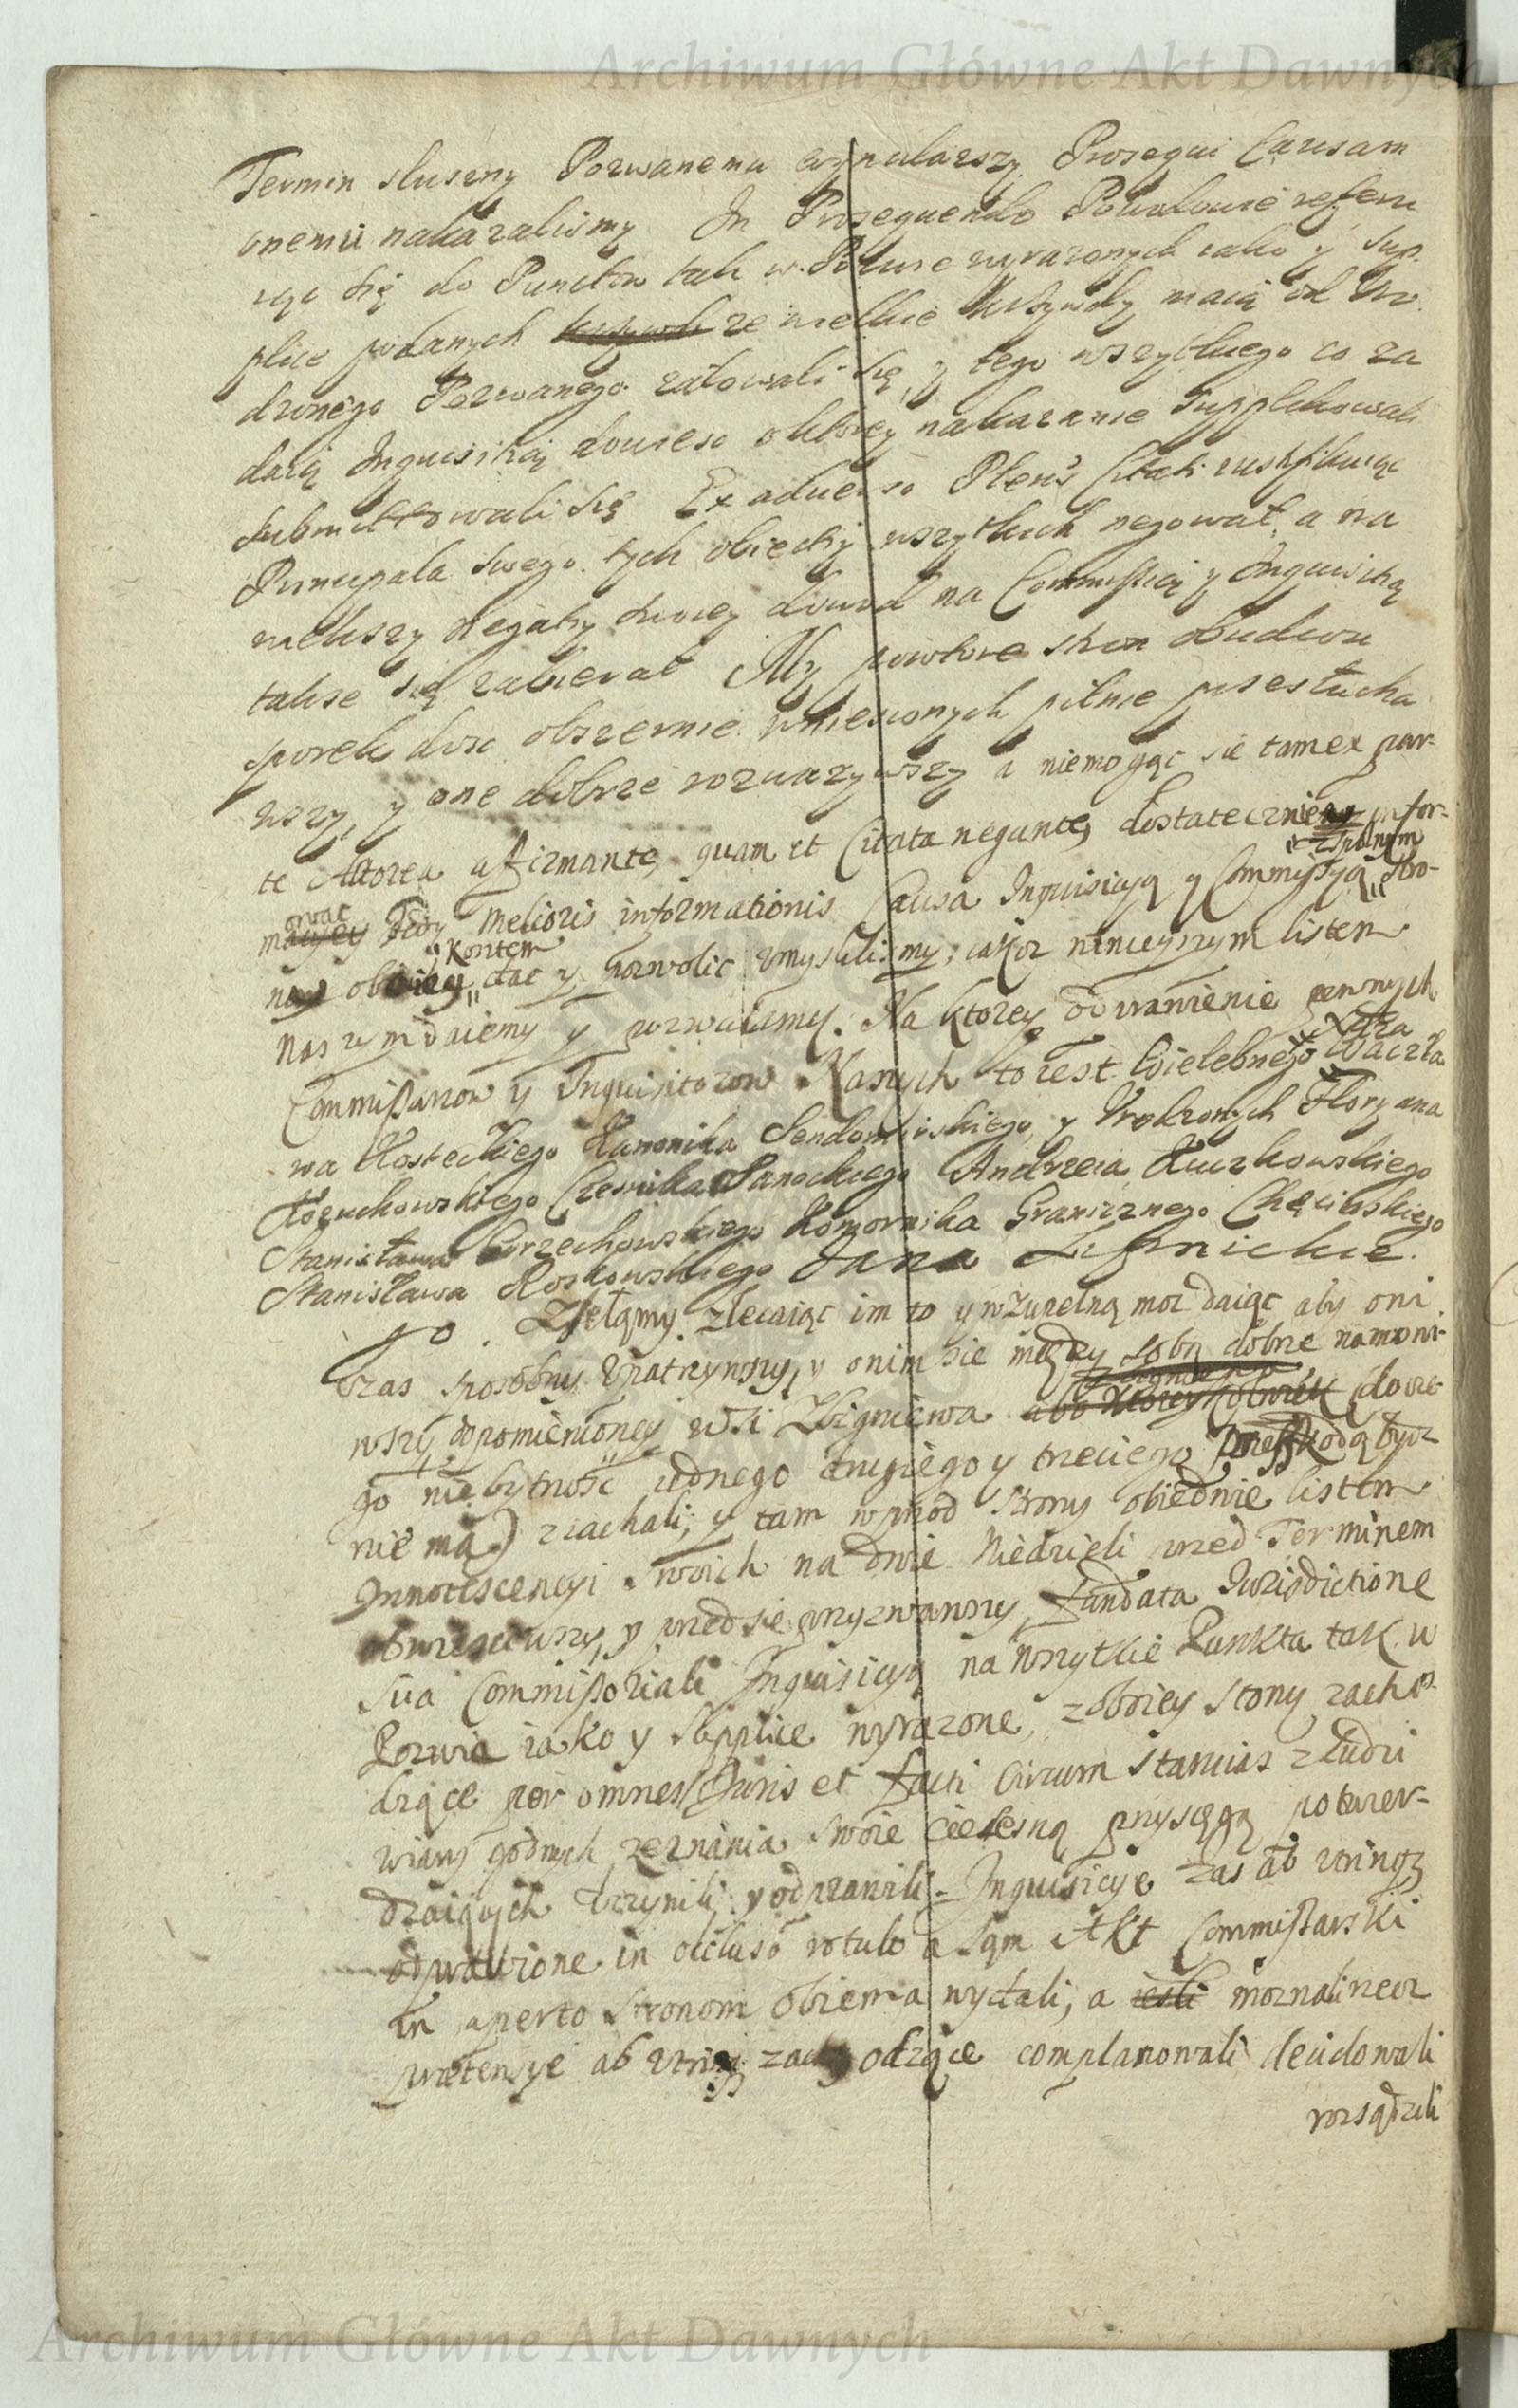 Archiwum Główne Akt Dawnych
Termin sluszny Pozwanemu Prosequi Causam
onemu nakazalismy In Prosequendo Powodowie refera
iąc się do Punctow tak w Pozwie wyrazonych iako y Sup
plice podanych ze wielkie krzywdy maią od Uro
dzonego Pozwanego załowali się y tego wszytkiego co za
daią Inquisitią dowiesc o ktorey nakazanie supplikowali
submittowali się Ex adverso Plen's Citati iustifikuiąc
Principala swego tych obiectiy wszytkich negował, a na
wiekszy negaty swoiey dowod na Commissią y Inquisitią
takze się zabierał My powtore stron obudwu
sporek dosc obszernie wniesionych pilnie przesłucha
wszy, y one dobrze rozwazywszy a niemogąc sie tam ex par-
te Actorea afirmante, quam et Citata negante, dostatecznie infor-
mowac melioris informationis Causa Inquisicyą y Commissyą Stro-
z spolnym
obiiey kosztem dac y pozwolic umyslilismy; iakoz ninieyszym listem
naszym daiemy y pozwalamy. Na ktorey odprawienie pewnych
Commissarzow y Inquisitorow Naszych to iest Wielebnego Xdza Waczła
wa Kosteckiego Kanonika Sendomirskiego, y Urodzonych Floryana
Kozuchowskiego Czesnika Sanockiego Andrzeia Kuczkowskiego
Stanisława Grzechowskiego Komornika Granicznego Chęcinskiego
Stanisława Roskowskiego Jana Lipnickie
go. Zsełamy. zlecaiąc im to y w zupełną moc daiąc aby oni
czas sposobny upatrzywszy, y onim sie między sobą dobrze namowi-
wszy, do pomienioney wsi Zbigniewa (ktore-
go niebytnosc iednego drugiego y trzeciego przeszkodą bydz
nie ma) ziachali; y tam wprzod strony obiedwie listem
Innotescencyi swoich na dwie Niedzieli przed Terminem
obwiesciwszy, y przed sie przyzwawszy, fundata Iurisdictione
sua Commissoriali Inquisicyą na wszytkie Punkta tak w
Pozwie iako y Supplice wyrazone, z oboiey stony zacho-
dzące per omnes Iuris et facti circumstancias z ludzi
wiary godnych zeznania swoie cielesną przysięgą potwier-
dzaiących uczynili, y odprawili. Inquisicye zas ab utrinq
odprawione in occluso rotulo a sąm Akt Commissarski
in aperto stronom obiema wydali, a moznali rzecz
pretensye ab utrinq zachodzące complanowali decidowali
rozsądzili
Archiwum Główne Akt Dawnych